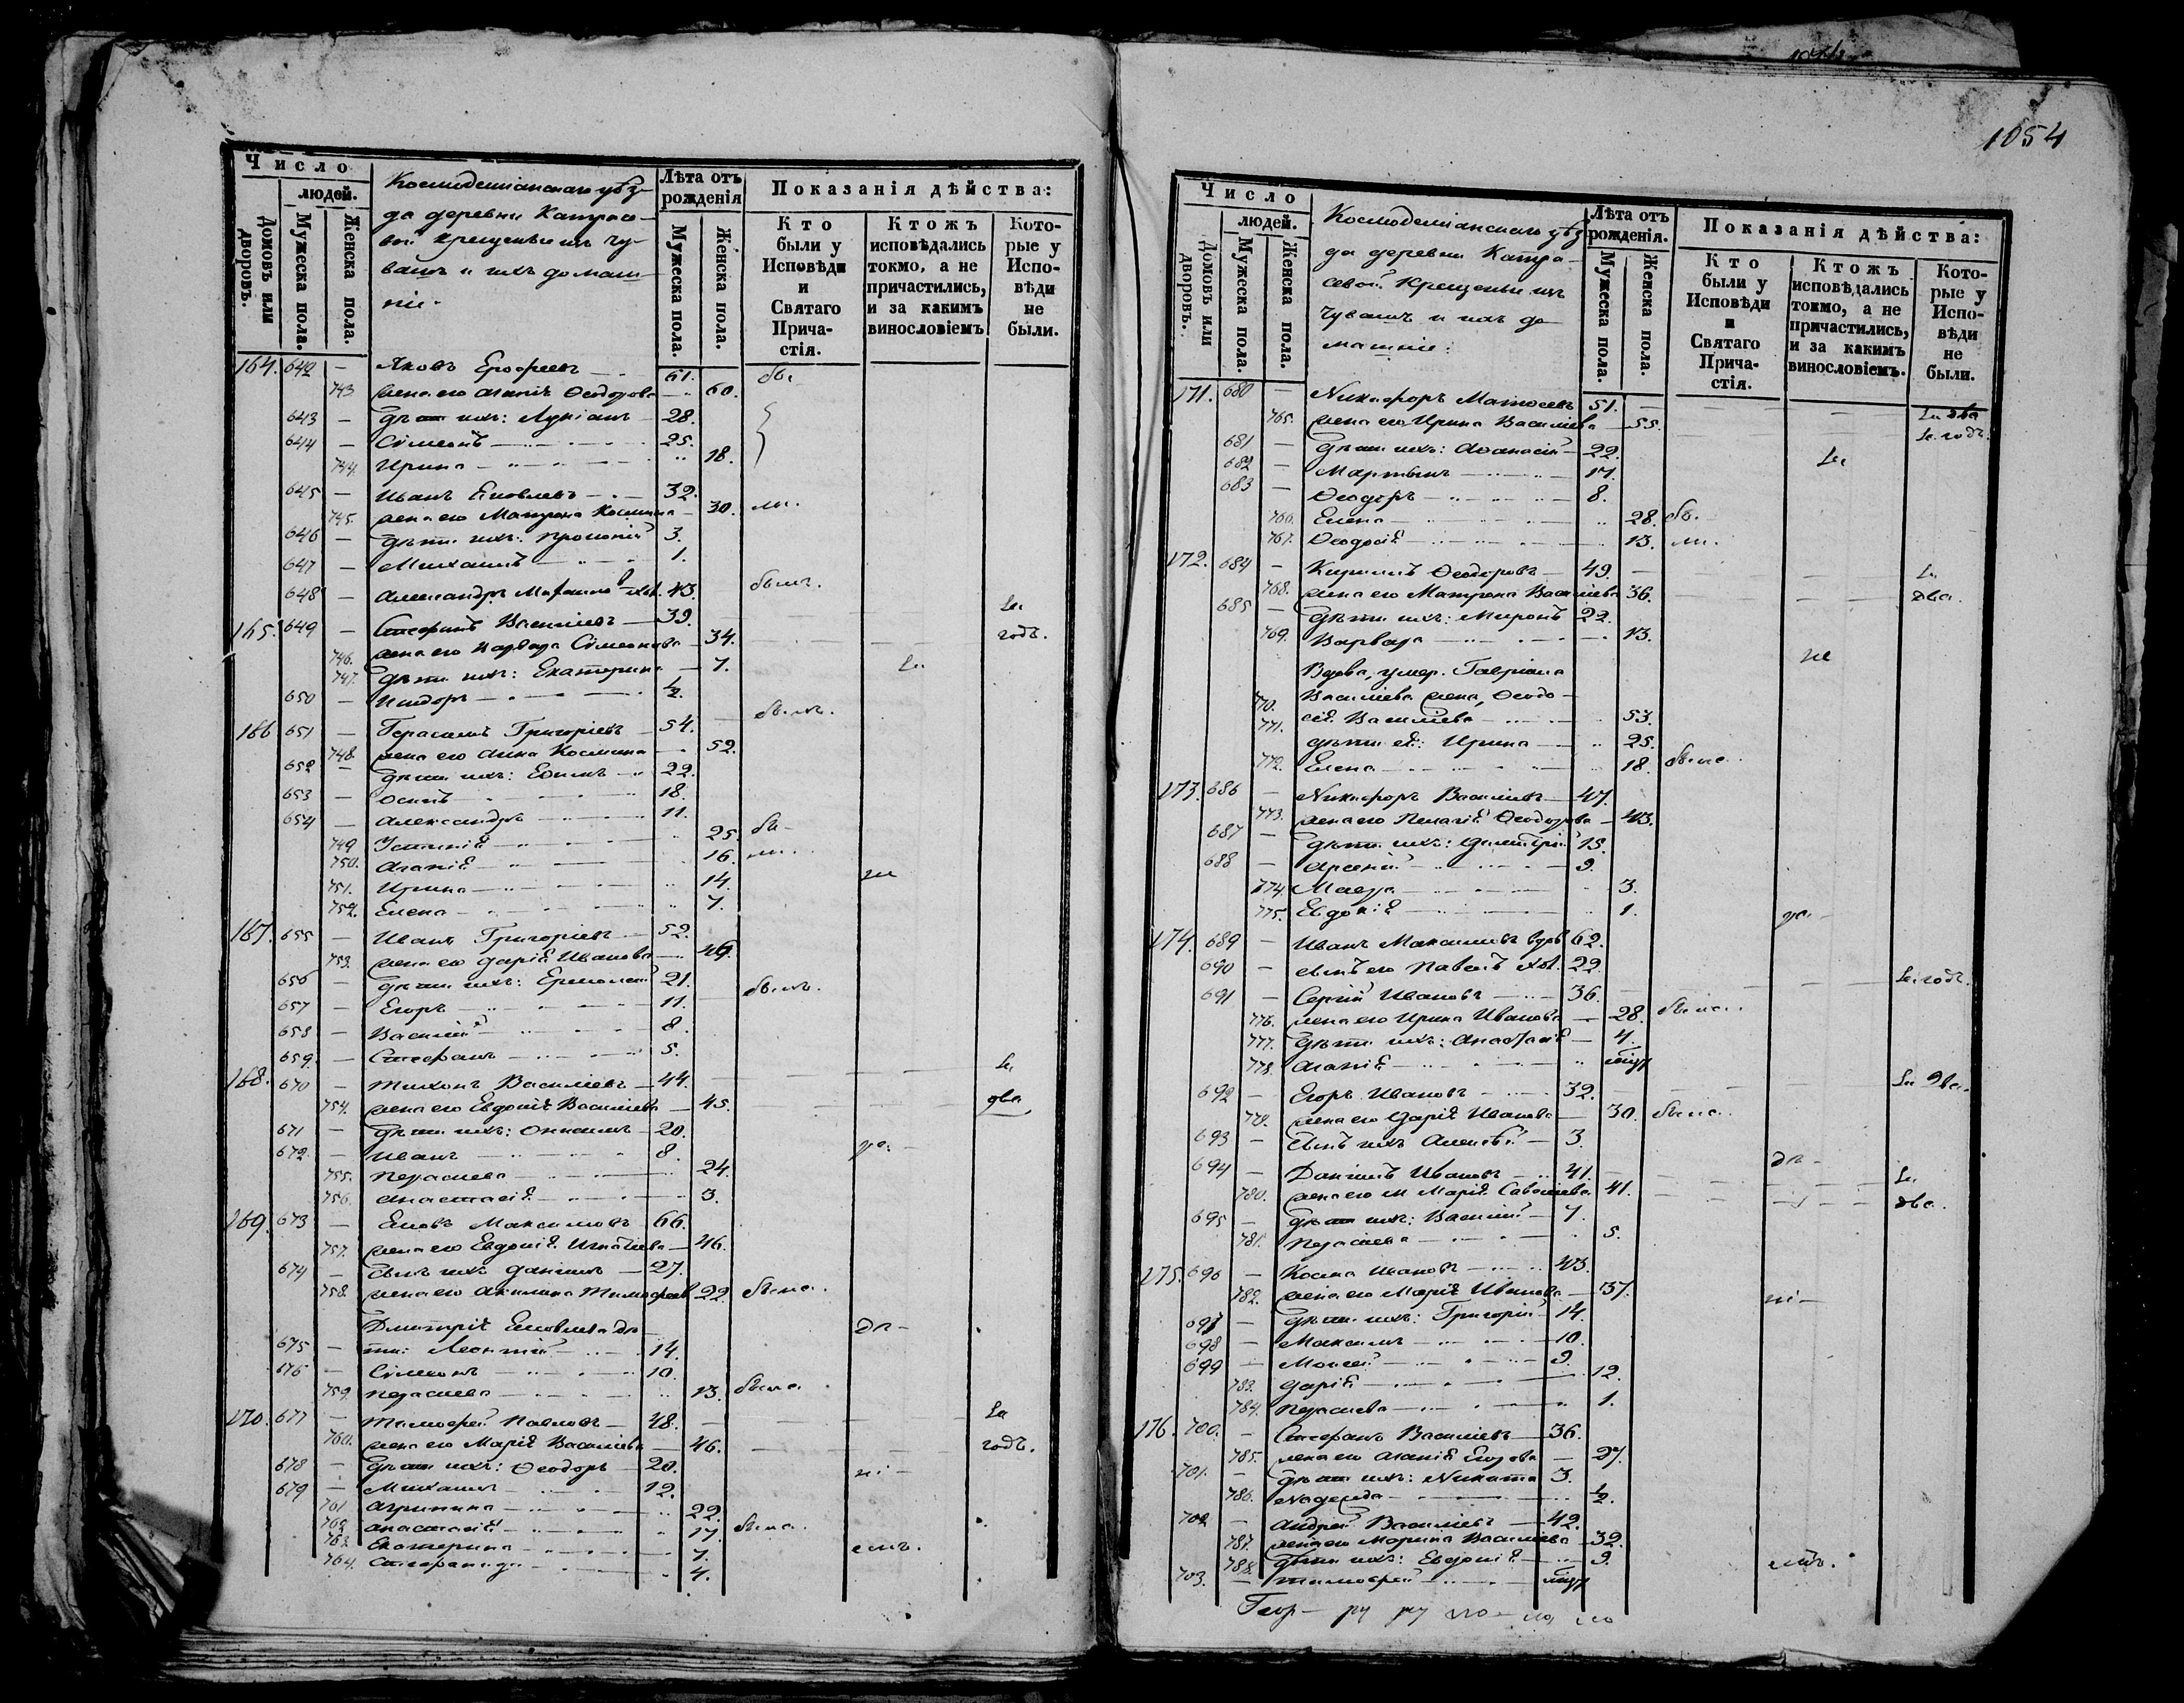 1054
Число
людей.
Домовъ или дворовъ.
Мужеска пола.
Женска пола.
Космодеміанскаго уѣз-
да деревни Катрасе-
вой крещеныхъ чу-
вашъ и ихъ домаш-
ніе.
Лѣта отъ рожденія
Мужеска пола.
Женска пола.
Показанія дѣйства:
Кто были у Исповѣди и Святаго Причастія.
Ктожъ исповѣдались токмо, а не причастились, и за какимъ винословіемъ
Которые у Исповѣди не были.
164. 642 — Яковъ Ерофеевъ 61. бы-
743. жена его Агапія Ѳеодорова 60.
643 — дѣти ихъ: Лукіанъ 28.
644 — Сімеонъ 25.
744. Ирина 18.
645 — Иванъ Яковлевъ 32.
745. жена его Матрона Космина 30. ли.
646 — дѣти ихъ: 3.
647 — Михаилъ 1.
648 — Александръ 43. былъ.
165. 649 — Стефанъ Васильевъ 39. За
746. жена его Варвара Сімеонова 34. годъ.
747. дѣти ихъ: Екатерина 7.
650 — Исидоръ ½.
166 651 — Герасимъ Григорьевъ 54. былъ.
748. жена его Анна Космина 52.
652 — дѣти ихъ: Еѳимъ 22.
653 — Осипъ 18.
654 — Александръ 11.
749. Устинія 25. бы-
750. Агапія 16. ли.
751. Ирина 14.
752. Елена 7.
167. 655 — Иванъ Григорьевъ 52.
753. жена его Дарія Иванова 49.
656 — дѣти ихъ: Ермолай 21. былъ.
657 — Егоръ 11.
658 — Василій 8.
659. — Стефанъ 5.
168. 670 — Тихонъ Васильевъ 44. За
754. жена его Евдокія Васильева 45. два
671 — дѣти ихъ: Онисимъ 20.
672. — Иванъ 8.
755. Параскева 24.
756. Анастасія 3.
169. 673 — Максимовъ 66.
757. жена его Евдокія Игнатьева 46.
674 — сынъ ихъ Даніилъ 27.
758. жена его Акилина Тимофеев 22. была.
Дмитрія дѣ-
675 — ти: Леонтій 14.
676 — Сімеонъ 10.
759. Параскева 13. была.
170. 677 — Тимофей Павловъ 48. За
760. жена его Марія Васильева 46. годъ.
678 — дѣти ихъ: Ѳеодоръ 20.
679 — Михаилъ 12.
761 Агрипина 22.
762 Анастасія 17. была.
763. Екатерина 7.
764. Стефанида 4.
Число
людей.
Домовъ или дворовъ.
Мужеска пола.
Женска пола.
Космодеміанскаго уѣз
да деревни Катра-
севой крещеныхъ
чувашъ и ихъ до
машніе:
Лѣта отъ рожденія.
Мужеска пола.
Женска пола.
Показанія дѣйства:
Кто были у Исповѣди и Святаго Причастія.
Ктожъ исповѣдались токмо, а не причастились, и за какимъ винословіемъ.
Которые у Исповѣди не были.
171. 680 — Никифоръ Матѳеевъ 51. За два
765. жена его Ирина Васильева 55. За годъ.
681 — дѣти ихъ: Аѳанасій 22.
682 — Мартынъ 17.
683 — Ѳеодоръ 8.
766. Елена 28. бы.
767. Ѳеодосія 13. ли.
172. 684 — Кириллъ Ѳеодоровъ 49. За
768. жена его Матрона Васильева 36. два.
685 — дѣти ихъ: Миронъ 22.
769. Варвара 13.
Вдова, умер. Гавріила
770. Васильева жена, Ѳеодо-
771. сія Васильева 53.
дѣти ея: Ирина 25.
772. Елена 18. была.
173. 686 — Никифоръ Васильевъ 47.
773. жена его Пелагія Ѳеодорова 43.
687 — дѣти ихъ: Димитрій 15.
688 — Арсеній 9.
774. Мавра 3.
775. Евдокія 1.
174. 689 — Иванъ Максимовъ вдов 62.
690 — сынъ его Павелъ хол. 22.
691 — Сергій Ивановъ 36. За годъ.
776. жена его Ирина Иванова 28. была.
777. дѣти ихъ: Анастасія 4.
778. Агапія
692 — Егоръ Ивановъ 32. За два.
779. жена его Дарія Иванова 30. была.
693 — сынъ ихъ Алексѣй 3.
694 — Даніилъ Ивановъ 41. За
780. жена его Марія Савельева 41. два.
695 — дѣти ихъ: Василій 7.
781. Параскева 5.
175. 696 — Косма Ивановъ 43.
782. жена его Марія Иванова 37.
697 — дѣти ихъ: Григорій 14.
698 — Максимъ 10.
699 — Моисей 9.
783. Дарія 12.
784. Параскева 1.
176. 700. — Стефанъ Васильевъ 36.
785. жена его Агапія Егорова 27.
701. — дѣти ихъ: Никита 3.
786. Надежда ½.
702 — Андрей Васильевъ 42.
787. жена его Марина Васильева 32.
788. дѣти ихъ: Евдокія 9.
703. — Тимофей